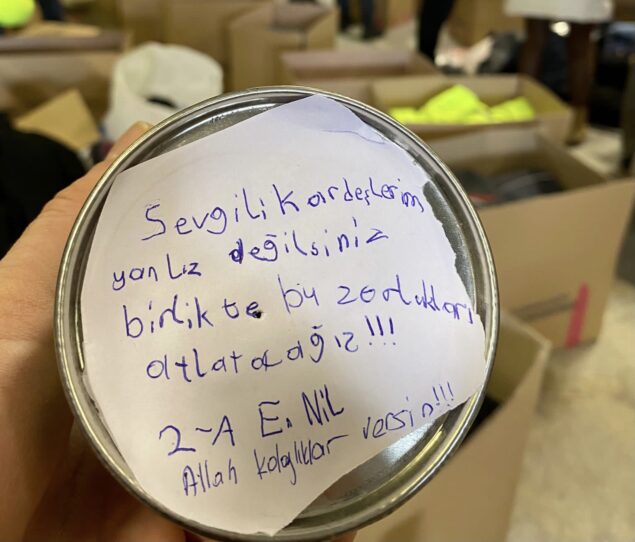 Sevgili Kardeşlerim
yanlız değilsiniz
birlikte bu zorlukları
atlatacağız!!!
2-A E. NiL
Allah kolaylıklar versin!!!